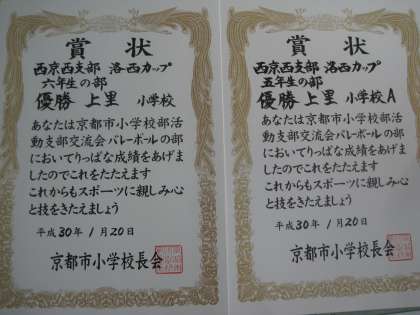 賞状
西京西支部 洛西カップ
六年生の部
優勝 上里 小学校
あなたは京都市小学校部活
動支部交流会バレーボールの部
においてりっぱな成績をあげま
したのでこれをたたえます
これからもスポーツに親しみ心
と技をきたえましょう
平成30年 1月20日
京都市小学校長会
賞状
西京西支部 洛西カップ
五年生の部
優勝 上里 小学校A
あなたは京都市小学校部活
動支部交流会バレーボールの部
においてりっぱな成績をあげま
したのでこれをたたえます
これからもスポーツに親しみ心
と技をきたえましょう
平成30年 1月20日
京都市小学校長会